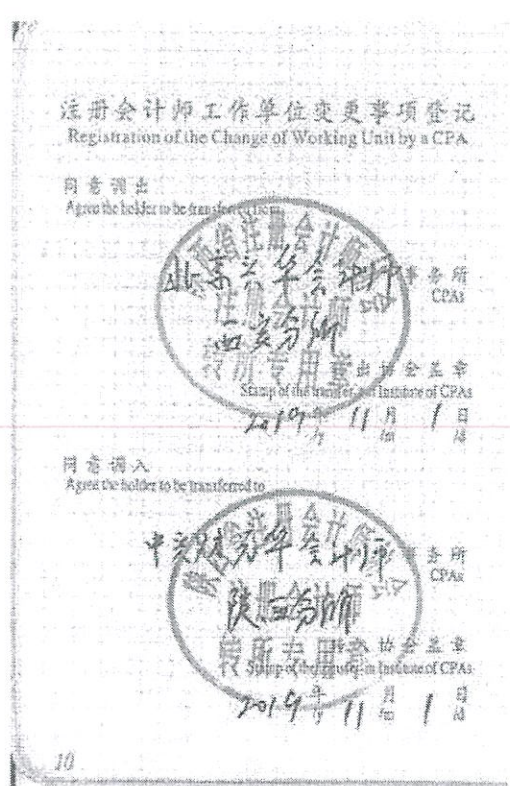 注册会计师工作单位变更事项登记
Registration of the Change of Working Unit by a CPA
同意调出
Agree the holder to be transferred from
北京兴华会计师事务所
CPAs
西安分所
转所专用章
出协会盖章
Stamp of the transfer-out Institute of CPAs
2019年 11月 1日
/y /m /d
同意调入
Agree the holder to be transferred to
会计师事务所
CPAs
陕西分所
转所专用章
协会盖章
Stamp of the transfer-in Institute of CPAs
2019年 11月 1日
/y /m /d
10